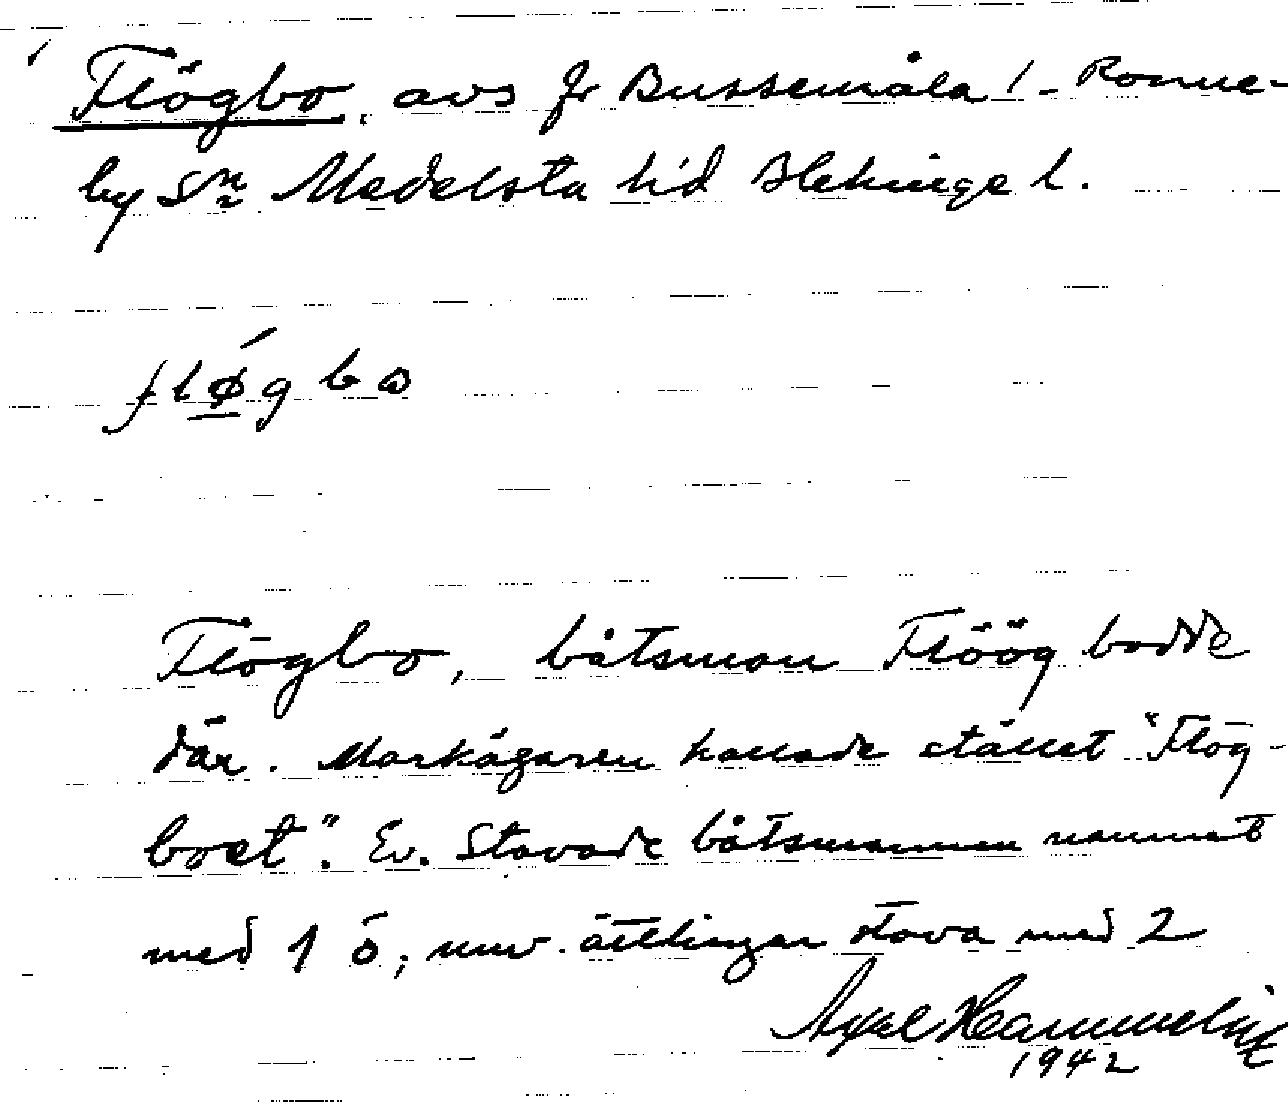 Flögbo, avs fr Bussemåla 1 - Ronne-
by Sn Medelsta hd Blekinge l.
flǿgbω
Flögbo, båtsman Flöög bodde
där. Markägaren kallade stället "Flög-
boet". Ev. stavade båtsmannen namnet
med 1 ö, nuv. ättlingar stava med 2
Axel Hammelin
1942